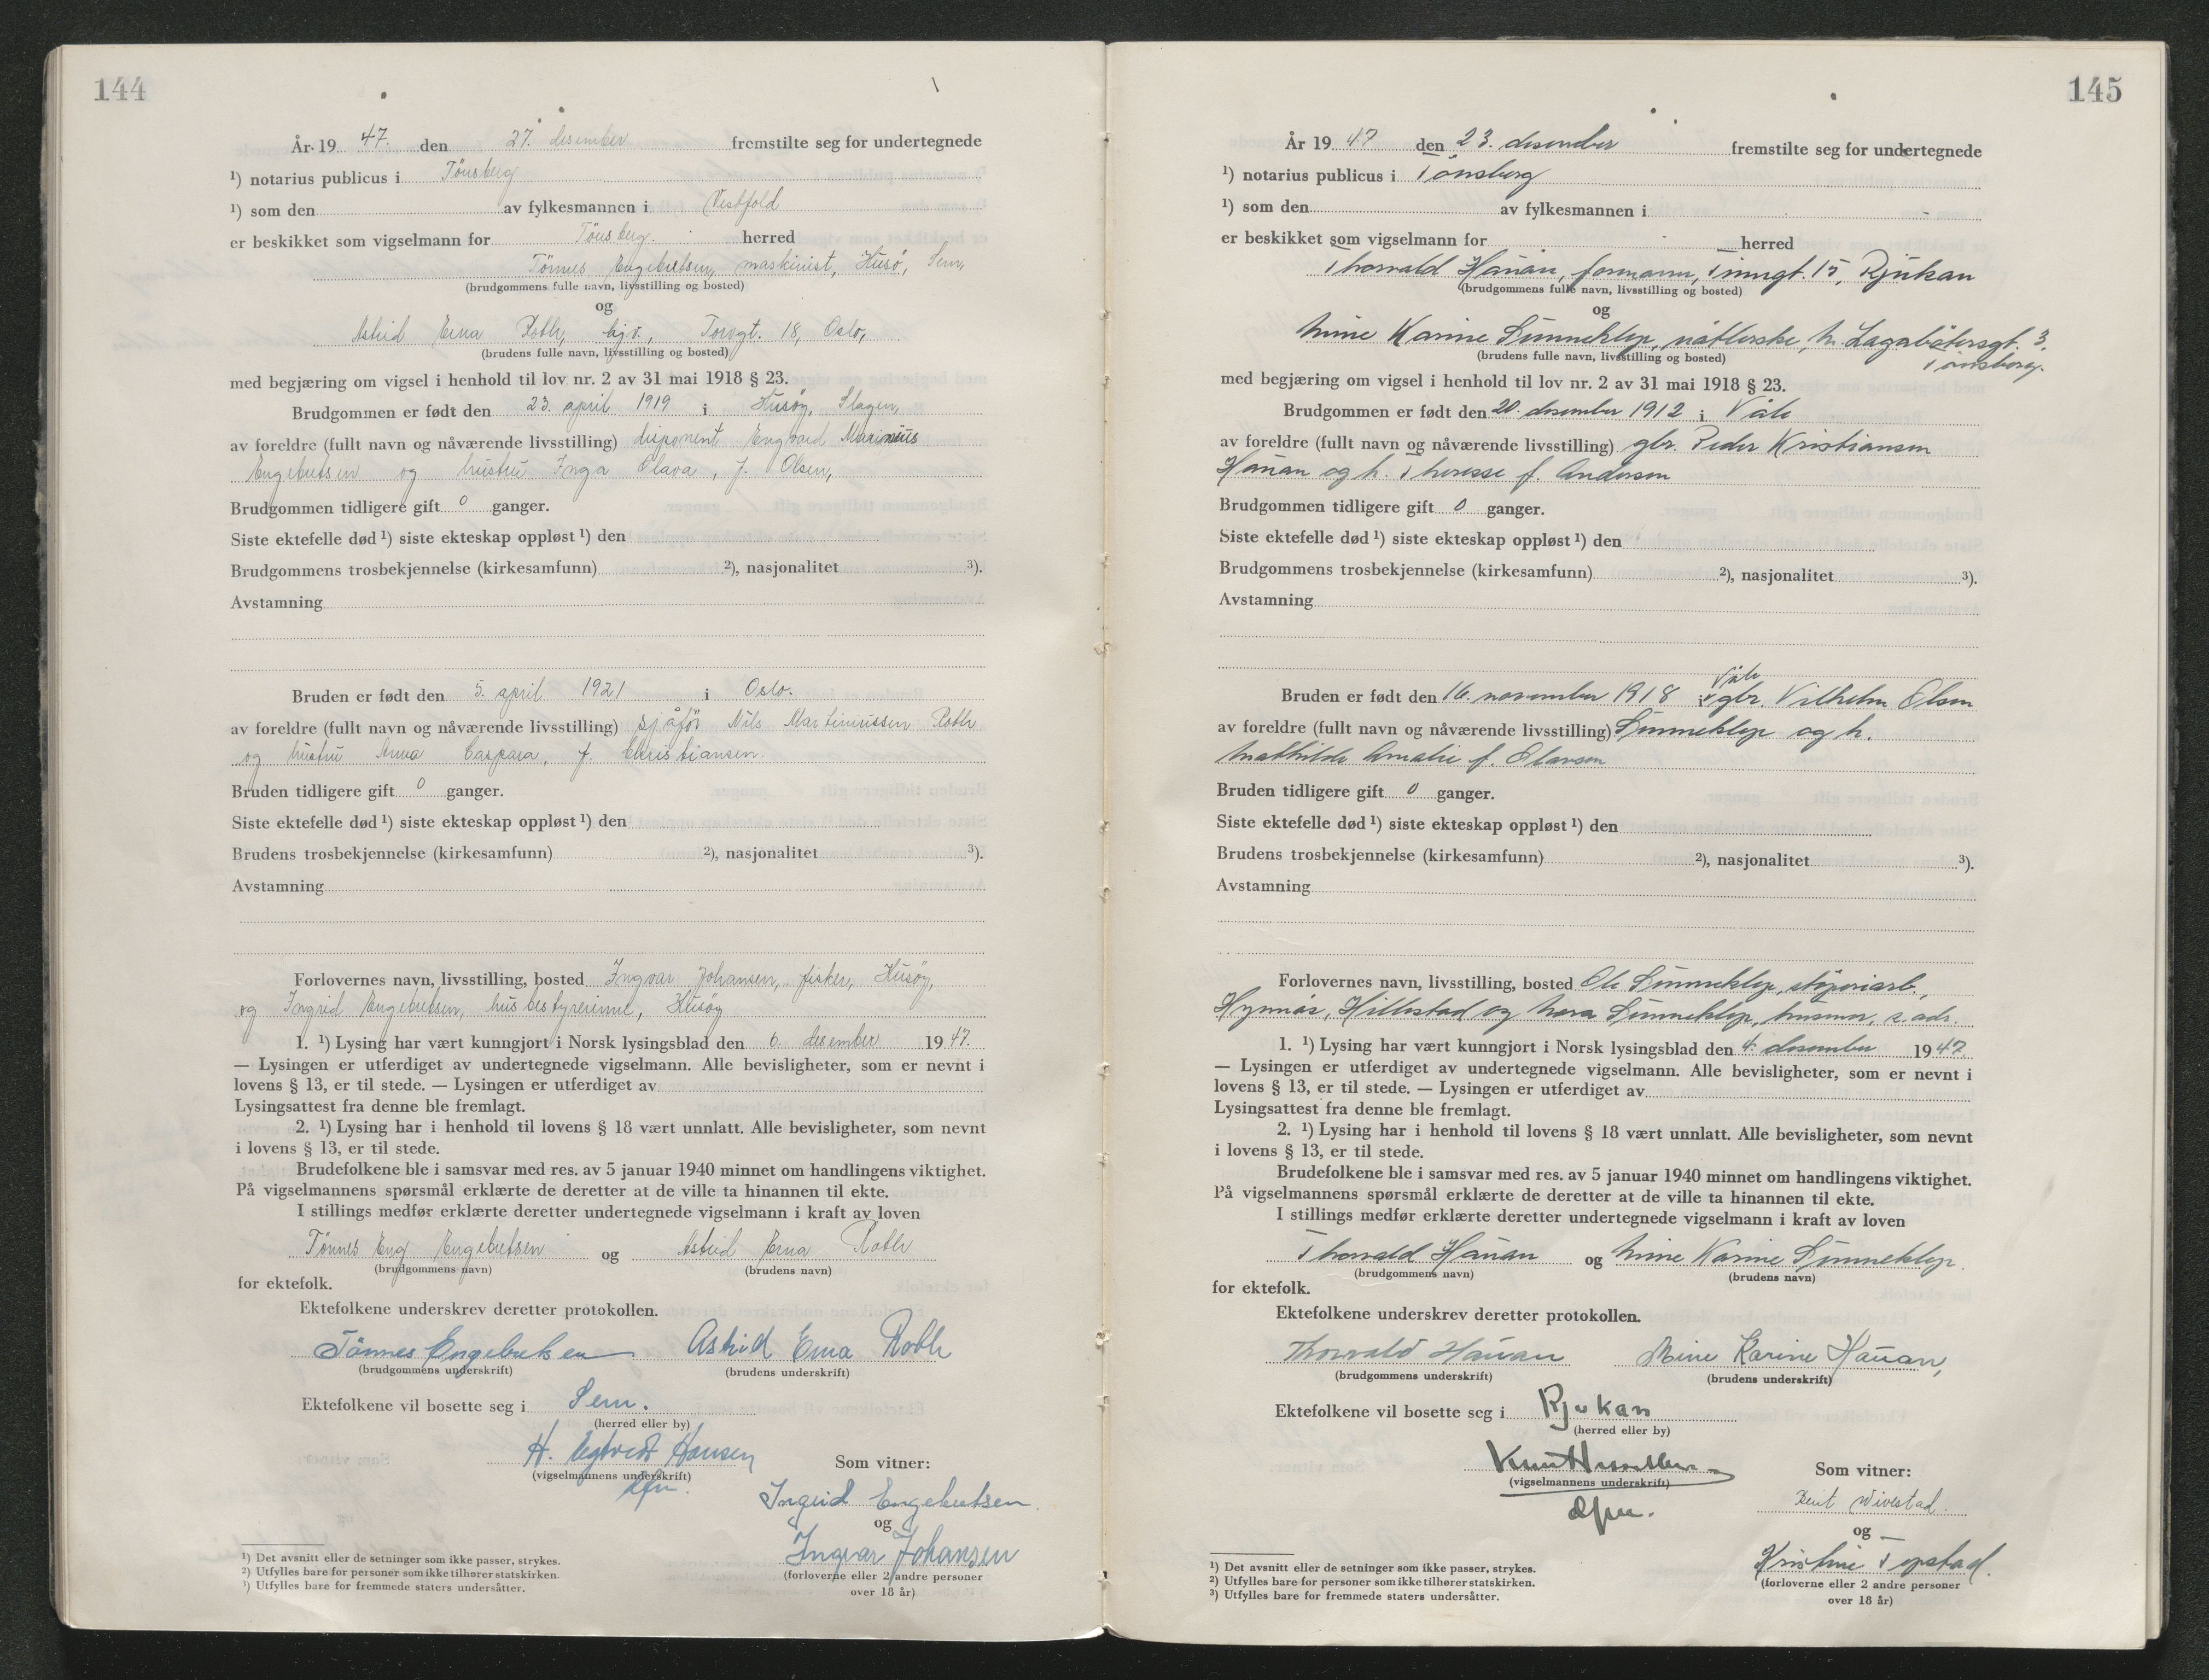 144
År 19 47. den 27. desember fremstilte seg for undertegnede
¹) notarius publicus i Tönsberg
¹) som den av fylkesmannen i Vestfold
er beskikket som vigselmann for Tönsberg. herred
Tönnes Engebretsen, maskinist, Husö, Sem,
(brudgommens fulle navn, livsstilling og bosted)
og
Astrid Erna Roth, kjv., Torvgt. 18, Oslo,
(brudens fulle navn, livsstilling og bosted)
med begjæring om vigsel i henhold til lov nr. 2 av 31 mai 1918 § 23.
Brudgommen er født den 23. april 1919 i Husöy, Slagen,
av foreldre (fullt navn og nåværende livsstilling) disponent Engvard Marinius
Engebretsen og hustru Inga Olava, f. Olsen,
Brudgommen tidligere gift 0 ganger.
Siste ektefelle død ¹) siste ekteskap oppløst ¹) den
Brudgommens trosbekjennelse (kirkesamfunn) ²), nasjonalitet ³).
Avstamning
Bruden er født den 5. april 1921 i Oslo.
av foreldre (fullt navn og nåværende livsstilling) sjåför Nils Martinussen Roth
og hustru Anna Caspara, f. Christiansen.
Bruden tidligere gift 0 ganger.
Siste ektefelle død ¹) siste ekteskap oppløst ¹) den
Brudens trosbekjennelse (kirkesamfunn) ²), nasjonalitet ³).
Avstamning
Forlovernes navn, livsstilling, bosted Ingvar Johansen, fisker, Husöy,
og Ingrid Engebretsen, husbestyrerinne, Husöy
1. ¹) Lysing har vært kunngjort i Norsk lysingsblad den 6. desember 19 47.
— Lysingen er utferdiget av undertegnede vigselmann. Alle bevisligheter, som er nevnt i
lovens § 13, er til stede. — Lysingen er utferdiget av
Lysingsattest fra denne ble fremlagt.
2. ¹) Lysing har i henhold til lovens § 18 vært unnlatt. Alle bevisligheter, som nevnt
i lovens § 13, er til stede.
Brudefolkene ble i samsvar med res. av 5 januar 1940 minnet om handlingens viktighet.
På vigselmannens spørsmål erklærte de deretter at de ville ta hinannen til ekte.
I stillings medfør erklærte deretter undertegnede vigselmann i kraft av loven
Tönnes Eng Engebretsen og Astrid Erna Roth
(brudgommens navn) (brudens navn)
for ektefolk.
Ektefolkene underskrev deretter protokollen.
Tönnes Engebretsen Astrid Erna Roth
(brudgommens underskrift) (brudens underskrift)
Ektefolkene vil bosette seg i Sem.
(herred eller by)
H. Hansen
(vigselmannens underskrift) Som vitner:
Ingrid Engebretsen
og
Ingvar Johansen
(forloverne eller 2 andre personer
over 18 år)
¹) Det avsnitt eller de setninger som ikke passer, strykes.
²) Utfylles bare for personer som ikke tilhører statskirken.
³) Utfylles bare for fremmede staters undersåtter.
145
År 19 47 den 23. desember fremstilte seg for undertegnede
¹) notarius publicus i Tönsberg
¹) som den av fylkesmannen i
er beskikket som vigselmann for herred
Thorvald Hauan, formann, Tinngt. 15, Rjukan
(brudgommens fulle navn, livsstilling og bosted)
og
Mine Karine Linneklep, nåtlerske, M. Lagabötersgt. 3.
Tönsberg.
(brudens fulle navn, livsstilling og bosted)
med begjæring om vigsel i henhold til lov nr. 2 av 31 mai 1918 § 23.
Brudgommen er født den 20. desember 1912 i Våle
av foreldre (fullt navn og nåværende livsstilling) gbr. Peder Kristiansen
Hauan og h. Theresse f. Andersen
Brudgommen tidligere gift 0 ganger.
Siste ektefelle død ¹) siste ekteskap oppløst ¹) den
Brudgommens trosbekjennelse (kirkesamfunn) ²), nasjonalitet ³).
Avstamning
Våle
Bruden er født den 16. november 1918 gbr. Vilhelm Olsen
av foreldre (fullt navn og nåværende livsstilling) Linneklep og h.
Mathilde Amalie f. Olavsen
Bruden tidligere gift 0 ganger.
Siste ektefelle død ¹) siste ekteskap oppløst ¹) den
Brudens trosbekjennelse (kirkesamfunn) ²), nasjonalitet ³).
Avstamning
Forlovernes navn, livsstilling, bosted Ole Linneklep, støperiarb.,
Hillestad og Nora Linneklep, husmor, s. adr.
1. ¹) Lysing har vært kunngjort i Norsk lysingsblad den 4. desember 19 47.
— Lysingen er utferdiget av undertegnede vigselmann. Alle bevisligheter, som er nevnt i
lovens § 13, er til stede. — Lysingen er utferdiget av
Lysingsattest fra denne ble fremlagt.
2. ¹) Lysing har i henhold til lovens § 18 vært unnlatt. Alle bevisligheter, som nevnt
i lovens § 13, er til stede.
Brudefolkene ble i samsvar med res. av 5 januar 1940 minnet om handlingens viktighet.
På vigselmannens spørsmål erklærte de deretter at de ville ta hinannen til ekte.
I stillings medfør erklærte deretter undertegnede vigselmann i kraft av loven
Thorvald Hauan og Mine Karine Linneklep.
(brudgommens navn) (brudens navn)
for ektefolk.
Ektefolkene underskrev deretter protokollen.
Thorvald Hauan Mine Karine Hauan,
(brudgommens underskrift) (brudens underskrift)
Ektefolkene vil bosette seg i Rjukan
(herred eller by)
(vigselmannens underskrift) Som vitner:
Berit Wivestad.
og
Kristine Topstad.
(forloverne eller 2 andre personer
over 18 år)
¹) Det avsnitt eller de setninger som ikke passer, strykes.
²) Utfylles bare for personer som ikke tilhører statskirken.
³) Utfylles bare for fremmede staters undersåtter.